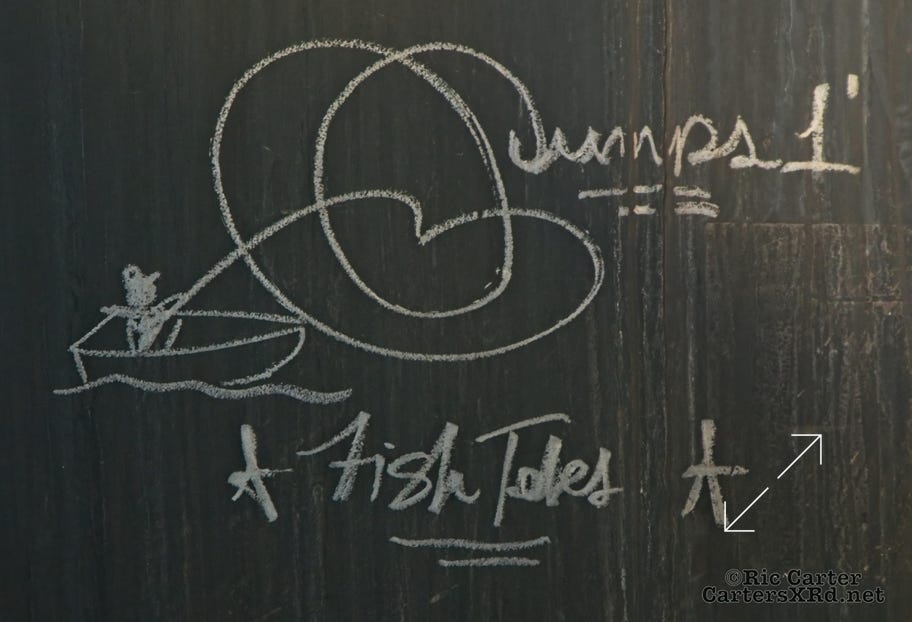 Jumps 1'
Fish Tales
©Ric Carter
CartersXRd.net